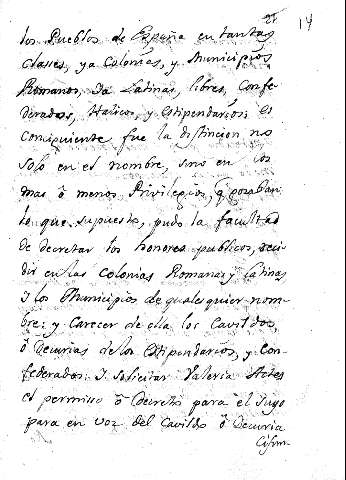 27 14
los Pueblos de España en tantas
clases, ya Colonias, y Municipios
Romanos, Ya Latinas, libres, Confe-
derados, Italicos, y estipendarios: es
consiguiente fue la distincion no
solo en el nombre, sino en los
mas ô menos Privilegios, q gozaban
lo que supuesto, pudo la facultad
de decretar los honores publicos, resi-
dir en las Colonias Romanas y Latinas
y los Municipios de qualesquier nom-
bre: y Carecer de ella los Cavildos
ô Decurias de los Estipendarios, y Con-
federados: Y solicitar Valeria
el permiso ô Decreto para el suyo
para en voz del Cavildo ô Decuria